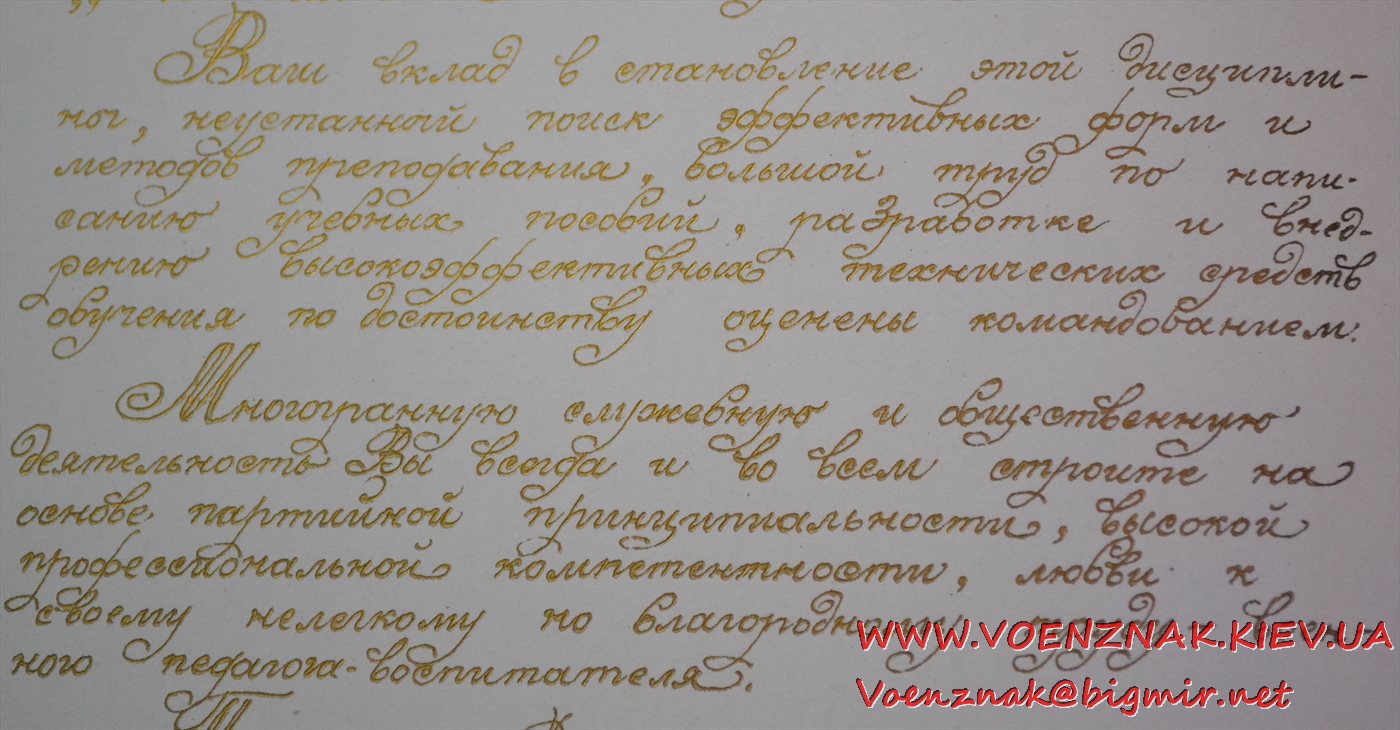 Ваш вклад в становление этой дисципли-
ны, неустанный поиск эффективных форм и
методов преподавания, большой труд по напи-
санию учебных пособий, разработке и внед-
рению высокоэффективных технических средств
обучения по достоинству оценены командованием.
Многогранную служебную и общественную
деятельность Вы всегда и во всем строите на
основе партийной принципиальности, высокой
профессиональной компетентности, любви к
своему нелегкому но благородному труду воен-
ного педагога-воспитателя.
WWW.VOENZNAK.KIEV.UA
Voenznak@bigmir.net